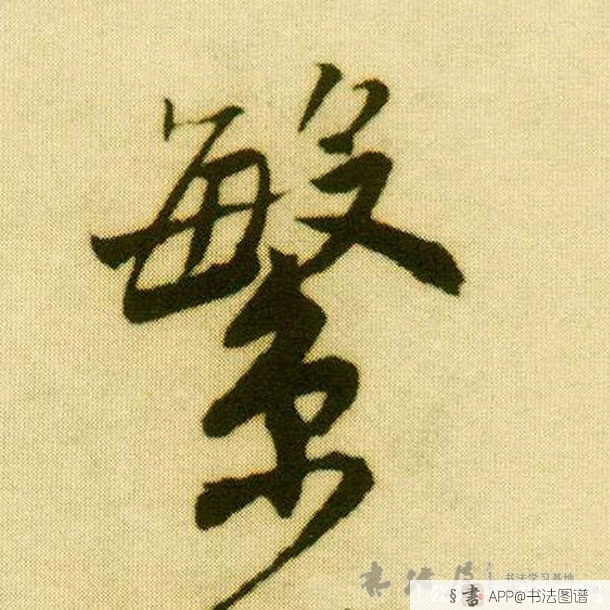 繁
书法学习基地
§書 APP@书法图谱